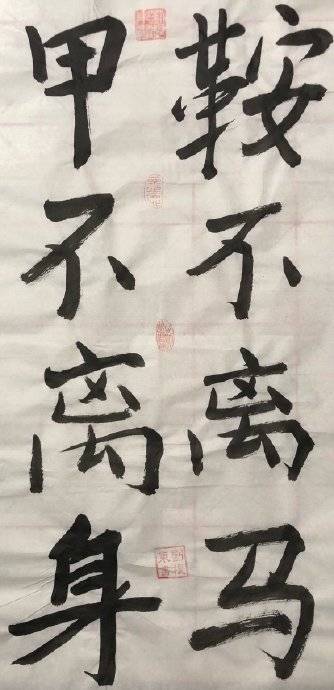 鞍不离马
甲不离身